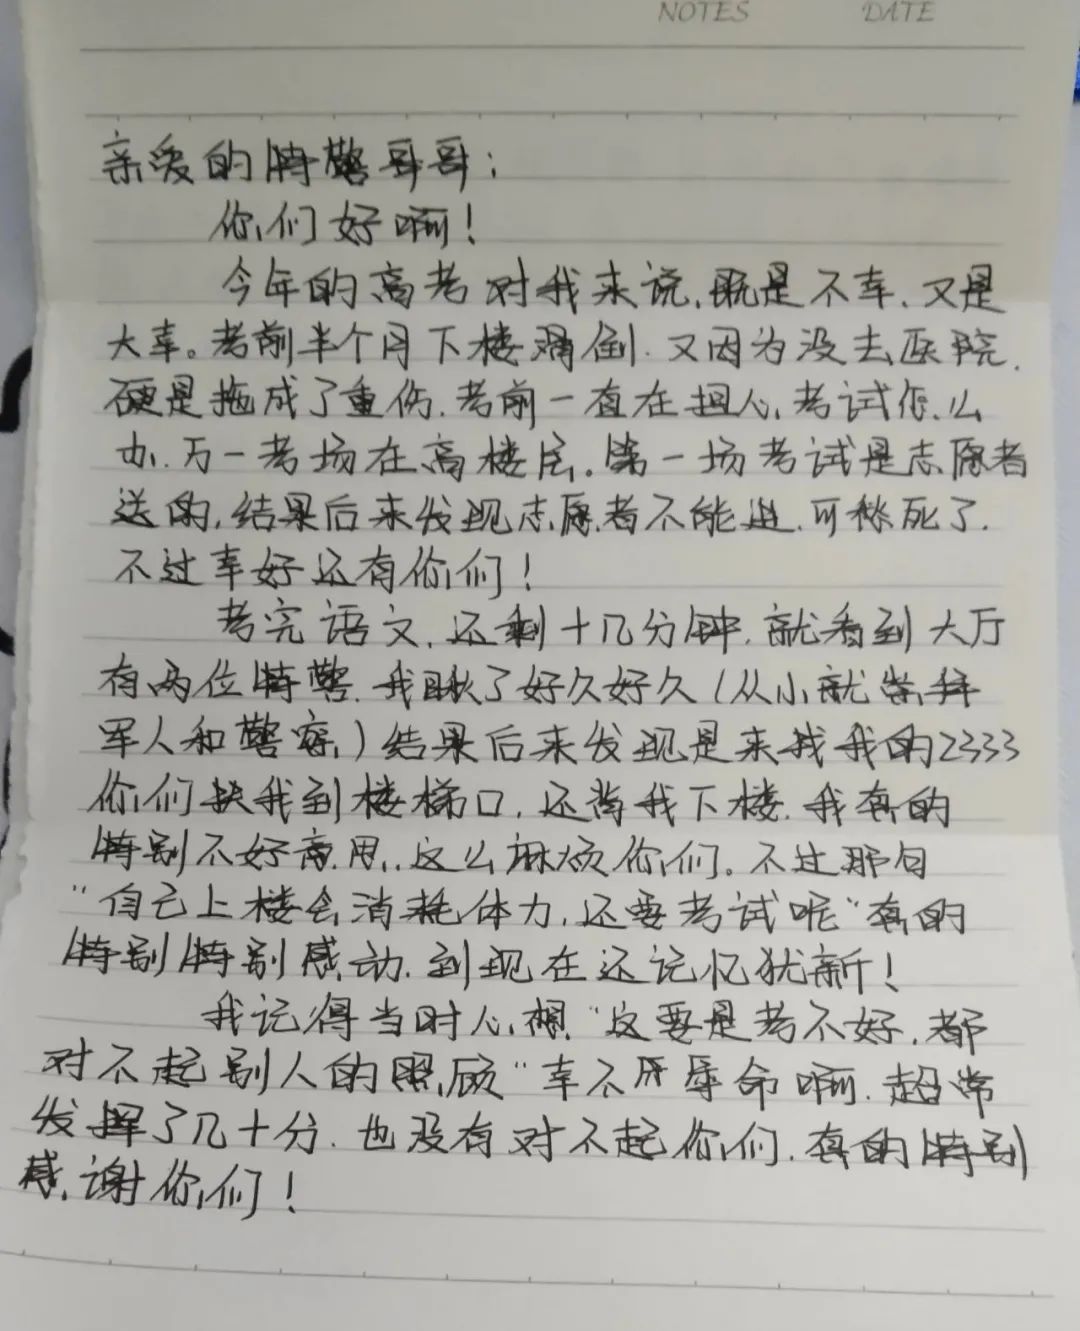 NOTES DATE
亲爱的特警哥哥：
你们好啊！
今年的高考对我来说，既是不幸，又是
大幸。考前半个月下楼滑倒，又因为没去医院，
硬是拖成了重伤，考前一直在担心，考试怎么
办，万一考场在高楼层。第一场考试是志愿者
送的，结果后来发现志愿者不能进，可愁死了，
不过幸好还有你们！
考完语文，还剩十几分钟，就看到大厅
有两位特警，我瞅了好久好久（从小就崇拜
军人和警察）结果后来发现是来找我的2333
你们扶我到楼梯口，还背我下楼，我真的
特别不好意思，这么麻烦你们。不过那句
“自己上楼会消耗体力，还要考试呢”真的
特别特别感动，到现在还记忆犹新！
我记得当时心想，“这要是考不好，都
对不起别人的照顾”幸不辱命啊，超常
发挥了几十分，也没有对不起你们，真的特别
感谢你们！